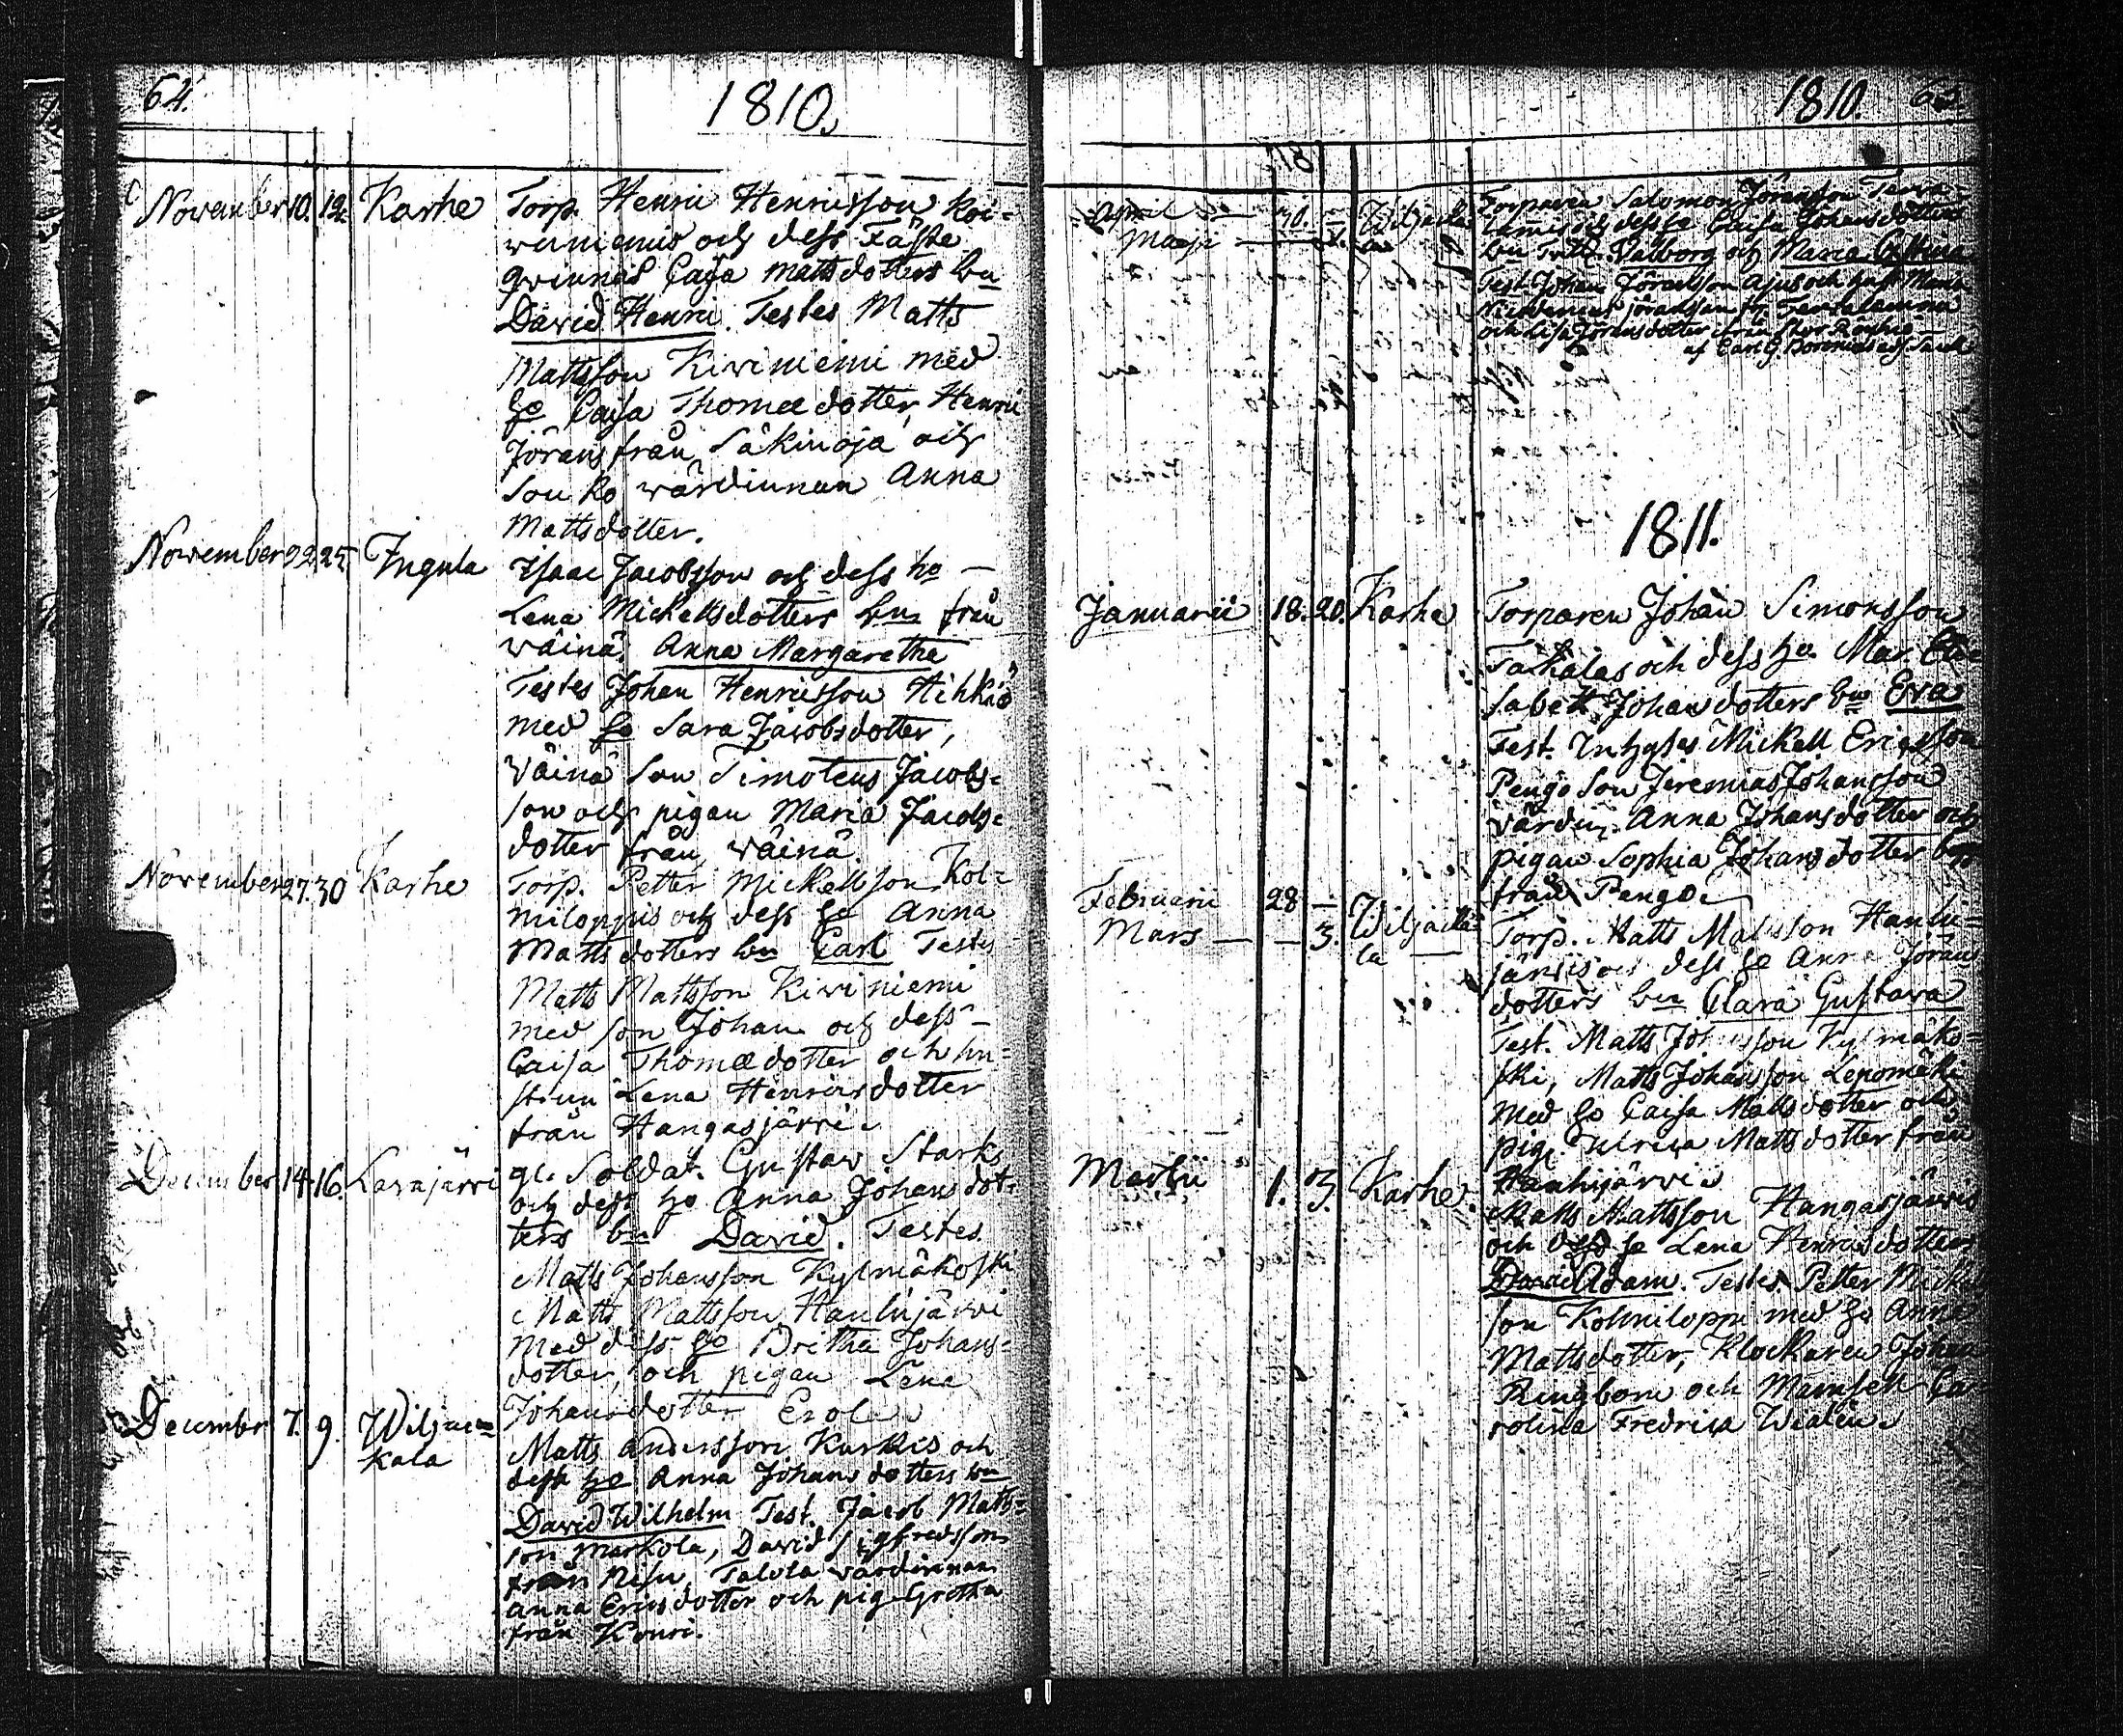 64.
1810.
November 10. 12. Karhe
Torp. Henric Henricsson Koi-
wuniemis och dess Fäste
qvinnas Caisa mattsdotters bn
David Henric. Testes Matts
Mattsson Kiviniemi med
ho Caisa Thomædotter, Henric
Jörans från Säkinoja och
Souko wärdinnan Anna
Mattsdotter.
November 22. 25. Jngula
Isaac Jacobsson och dess ho —
Lena Mickelsdotters bn från
wäinä. Anna Margaretha
Testes Johan Henricsson Hihkiö
med ho Sara Jacobsdotter,
Väinä Son Timoteus Jacobs-
son och pigan Maria Jacobs-
dotter från wäinä.
November 27. 30 Karhe
Torp. Petter Mickellsson Kol-
miloppis och dess ho Anna
Mattsdotters bn Carl Testes
Matts Mattsson Kiviniemi
med son Johan och dess
Caisa Thomædotter och hu-
strun Lena Henricsdotter
från Hangasjärvi.
December 14. 16. Lavajärvi
gl. Soldat. Gustav Stark
och dess ho Anna Johansdot-
ters bn David. Testes
Matts Johansson Kylmäkoski
Matts Mattsson Hauhijärvi
med dess ho Britha Johans-
dotter, och pigan Lena
Johansdotter Erola
December 7. 9. Wiljac-
kala
Matts Andersson Kurkis och
dess ho Anna Johansdotters bn
David Wilhelm Test. Jacob Matts-
son Markola, David Sigfredsson
från Risu, Talola värdinnan
Anna Ericsdotter och pig. Gretha
från Kouri.
1810. 65
April — 30. — Wiljacka
Maji — 1. la
Torparen Salomon Jöransson Terva-
lammis och dess ho Caisa Johansdotters
bn Valborg och Maria
Test. Johan Jöransson Ajus och
från Tervalammi
och Lisa Jöransdotter från
af Carl G. Borenius
1811.
Januarii 18. 20. Karhe
Torparen Johan Simonsson
Takalas och dess ho. Mar. Eli-
sabeth Johansdotters bn Eva
Test. Inhyses Mickell Ericsson
Pengo Son Jeremias Johansson
värdin. Anna Johansdotter och
pigan Sophia Johansdotter
från Pengo.
Februarii 28 —
Mars — — 3. Wiljacka
la —
Torp. Matts Mattsson Hauhi-
järvis och dess ho Anna Jörans
dotters bn Clara Gustava
Test. Matts Johansson Kylmäko-
ski, Matts Johansson Lepomäki
med ho Caisa Mattsdotter och
pig. Ulrica Mattsdotter från
Hauhijärvi.
Martii 1. 3. Karhe.
Matts Mattsson Hangasjärvis
och dess ho Lena Henricsdotters
Adam. Testes Petter Mickel
son Kolmiloppi med ho Anna
Mattsdotter, Klockaren Johan
Ringbom och Mamsell Ca-
rolina Fredrica Welin.